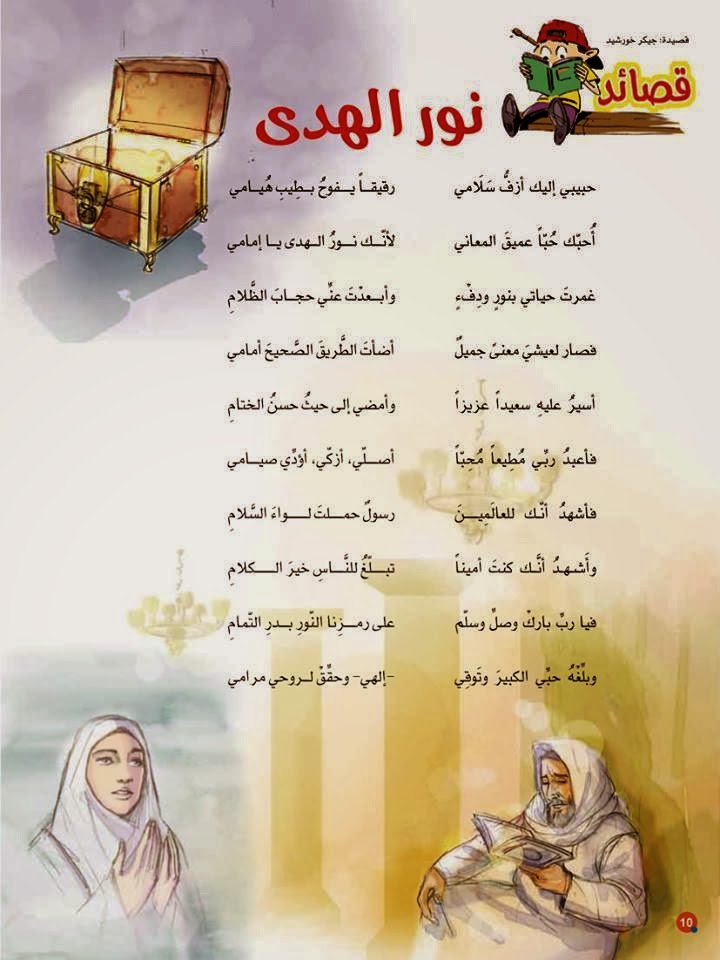 قصيدة: جيكر خورشيد
قصائد
نور الهدى
حبيبي إليك أزفُّ سَلَامي رقيقـاً يـفـوحُ بـطِيبِ هُيـامي
أُحبّك حُبّاً عميقَ المعاني لأنّـك نـورُ الـهدى يـا إمامي
غمرتَ حياتي بنورٍ ودِفْءٍ وأبـعدْتَ عنِّي حجـابَ الظَّلامِ
فصار لعيشيَ معنىً جميلٌ أضأتَ الطَّريقَ الصَّحيحَ أمامي
أسيرُ عليهِ سعيداً عزيزاً وأمضي إلى حيثُ حسنُ الختامِ
فأعبدُ ربِّي مُطِيعاً مُحِبّاً أصـلّي، أزكّي، أؤدِّي صيـامي
فأشهدُ أنّـك للعالَمِيـنَ رسولٌ حمـلـتَ لـواءَ السَّلامِ
وأَشـهـدُ أنَّـك كنتَ أميناً تبـلّغُ للنَّـاسِ خيرَ الـكلامِ
فيا ربِّ باركْ وصلِّ وسلّم على رمـزِنا النّورِ بـدرِ التّمامِ
وبلِّغْهُ حبِّي الكبيرَ وتَوقِي -إلهي- وحقِّقْ لـروحي مرامي
10